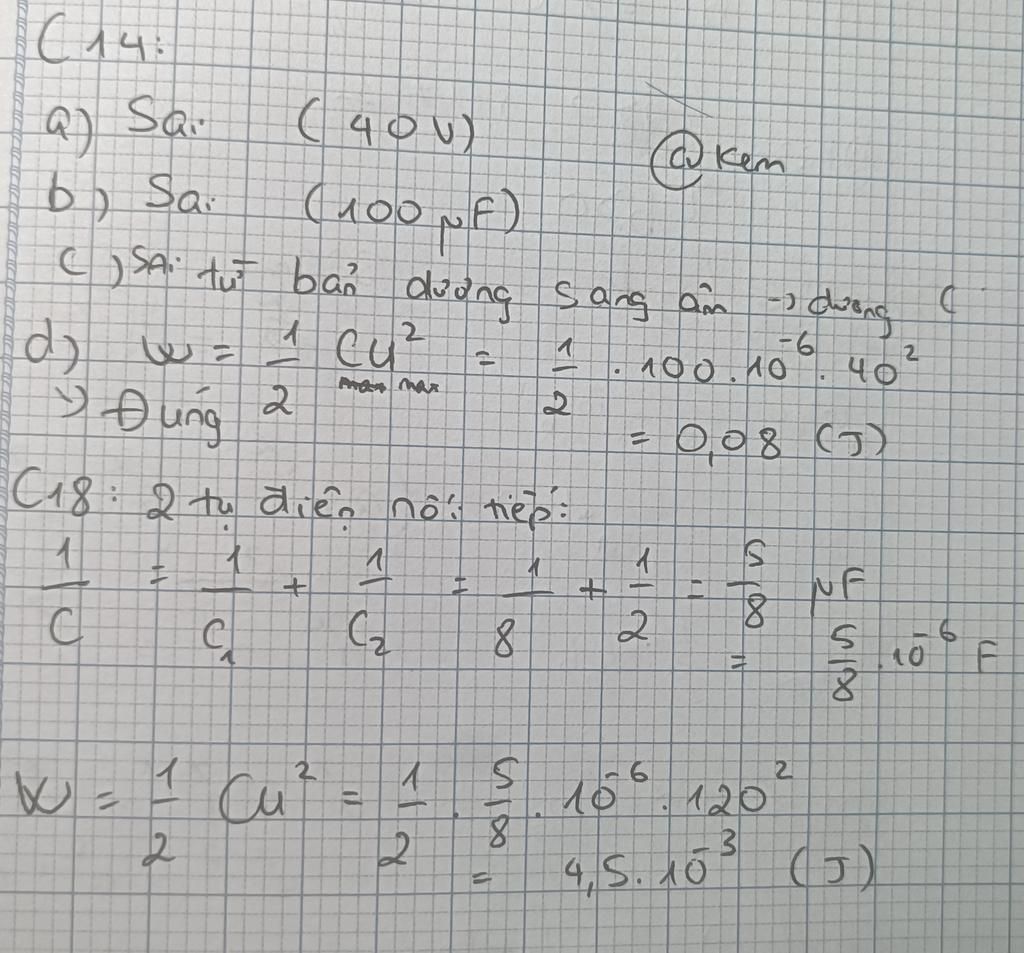 C14:
a) Sai (40V)
@Kem
b) Sai (100 μF)
c) Sai từ bản dương sang âm -> dương (
d) W = 1/2 Cu² = 1/2 . 100 . 10⁻⁶ . 40²
max max
-> Đúng = 0,08 (J)
C18: 2 tụ điện nối tiếp:
1/C = 1/C₁ + 1/C₂ = 1/8 + 1/2 = 5/8 μF
= 5/8 . 10⁻⁶ F
W = 1/2 Cu² = 1/2 . 5/8 . 10⁻⁶ . 120²
= 4,5 . 10⁻³ (J)